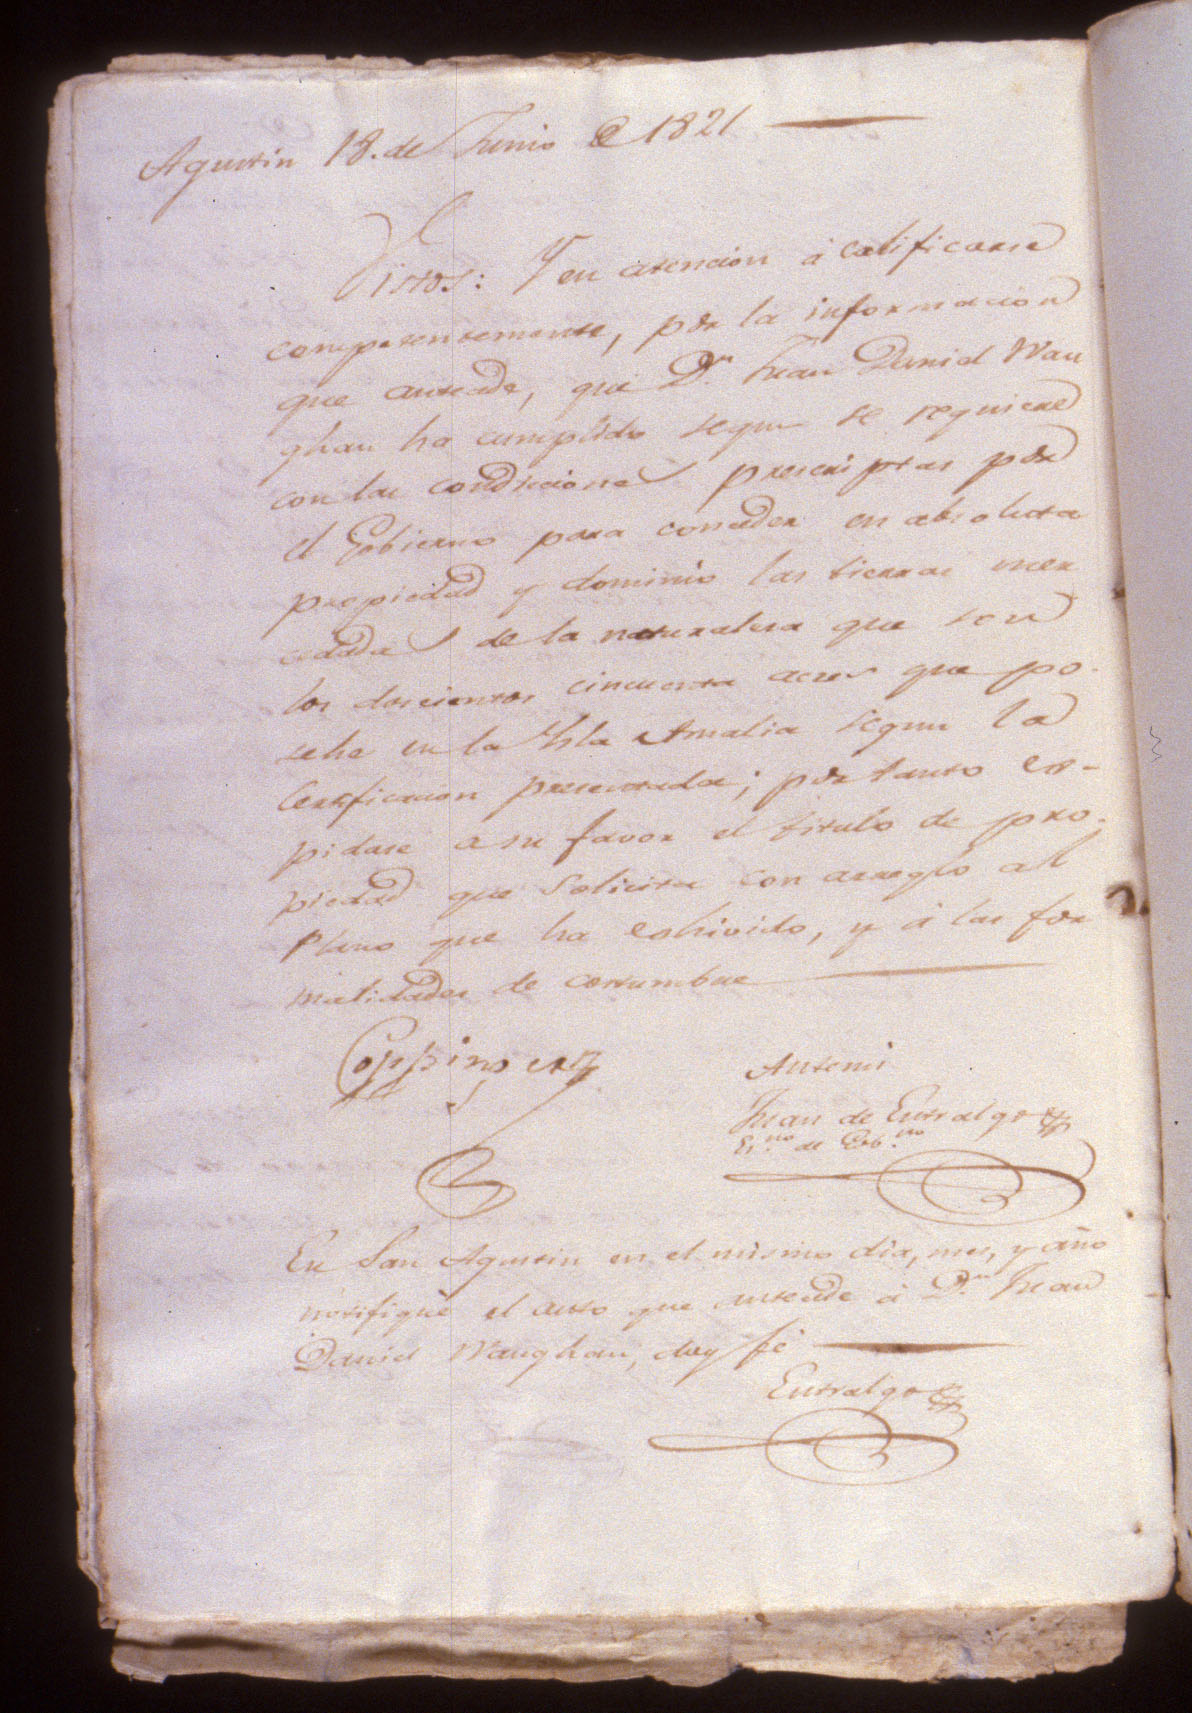 Agustin 18. de Junio de 1821
Vistos: Y en atencion á calificarse
competentemente, por la informacion
que antecede, que D.n Juan Daniel Wau
ghan ha cumplido segun se requiere
con las condiciones prescriptas por
el Gobierno para conceder en absoluta
propiedad y dominio las tierras mer
cedadas de la naturalesa que son
los doscientos cincuenta acres que po-
sehe en la Ysla Amalia segun la
Certificacion presentada; por tanto es-
pidase a su favor el titulo de pro-
piedad que Solicita con arreglo al
Plano que ha eshivido, y á las for
malidades de costumbre
Coppinger
Antemi
Juan de Entralgo
Es.no de Gob.no
En San Agustin en el mismo dia, mes, y año
notifiqué el auto que antecede á D.n Juan
Daniel Waughan, doy fé
Entralgo